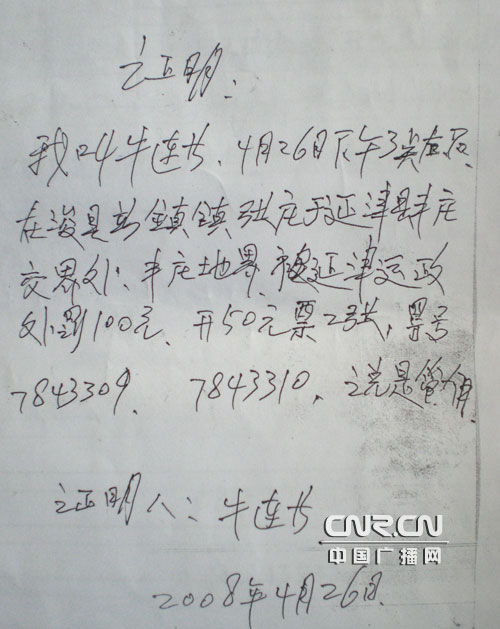 证明:
我叫牛连长、4月26日下午3点左右、
在浚县新镇镇张庄于延津县丰庄
交界处、丰庄地界、被延津运政
处罚100元、开50元票2张,票号
7843309、 7843310、说是管1月
证明人:牛连长
CNR.CN
中国广播网
2008年4月26日